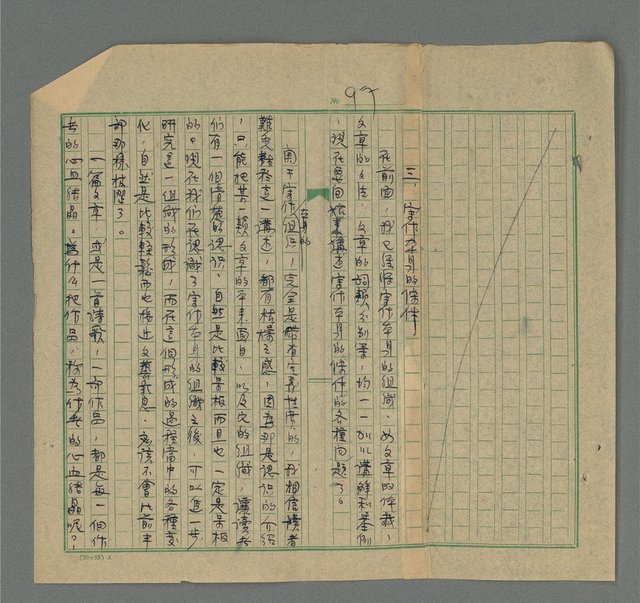 № 97
三、寫作本身的條件
在前面,我已經將寫作本身的組織,如文章的体裁,
文章的文法,文章的詞類分別等,均一一加以講解和舉例
,現在要回始來講述寫作本身的條件的各種問題了。
關于寫作本身的組織,完全是帶有定義性質的,我相信讀者
難免對於這一講述,都有枯燥之感,因為那是認識的介紹
,只能把某一類文章的本來面目,以及它的組織,讓讀者
们有一個清楚的認識。自然是比較呆板而且也一定是呆板
的。現在我们在認識了寫作本身的組織之後,可以進一步
研究這一組織的形成,而在這個形成的過程當中的各種變
化,自然是比較輕鬆而也接近文藝氣息,應該不會比前半
部那樣枯燥了。
一篇文章,或是一首詩歌,一部作品,都是每一個作
者的心血結晶。為什么把作品,称為作者的心血結晶呢?
(20×25) A